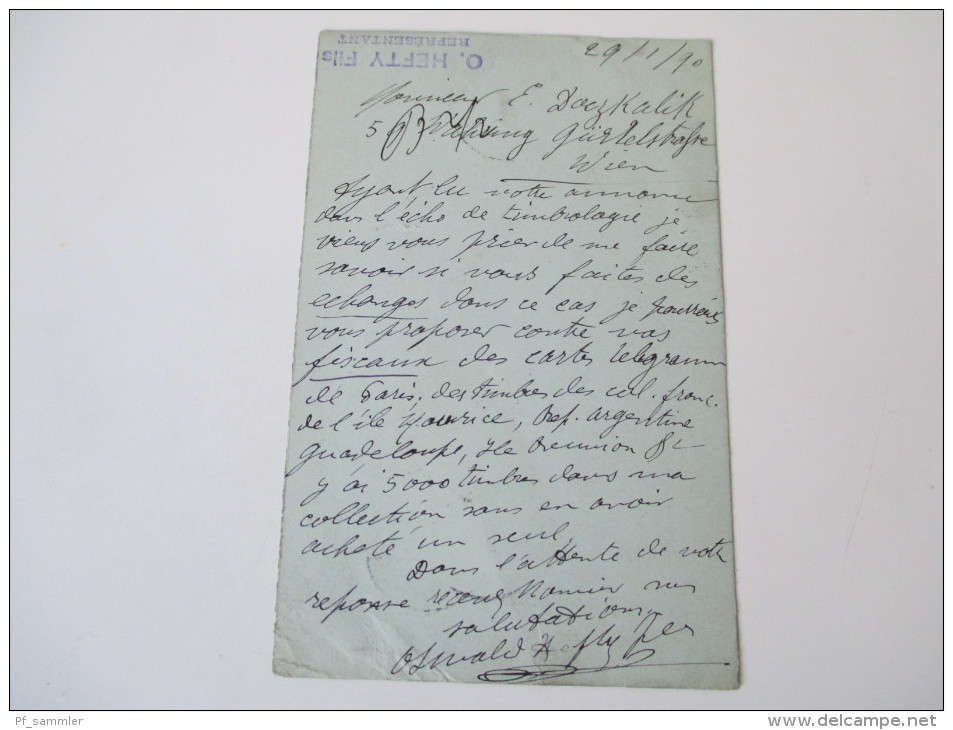 O. HEFTY Fils
REPRÉSENTANT
29/1/90
Monsieur E. Doezkalik
5 Währing Gürtelstraße
Wien
Ayant lu votre annonce
dans l'écho de timbrologie je
viens vous prier de me faire
savoir si vous faites des
echanges dans ce cas je pourrais
vous proposer contre vos
fiscaux des cartes telegramm
de Paris, des timbres des col. franc.
de l'île Maurice, Rep. Argentine
Guadeloupe, Ile Reunion &c
y ai 5000 timbres dans ma
collection sans en avoir
acheté un seul,
Dans l'attente de votre
reponse recevez Monsieur mes
salutations
Oswald Hefty fils
Pf_sammler
http://www.delcampe.net